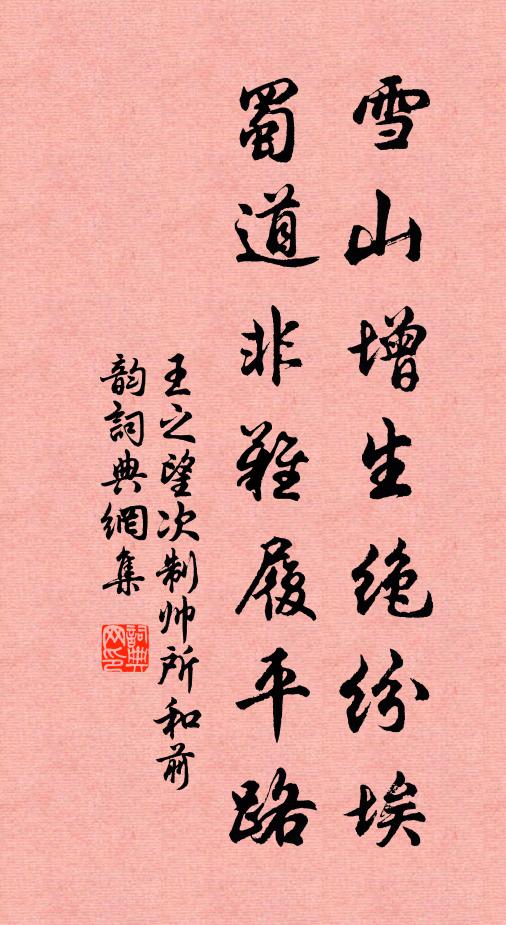 雪山增生绝纷埃
蜀道非难履平路
王之望次制帅所和前
韵词典網集
詞典
网印